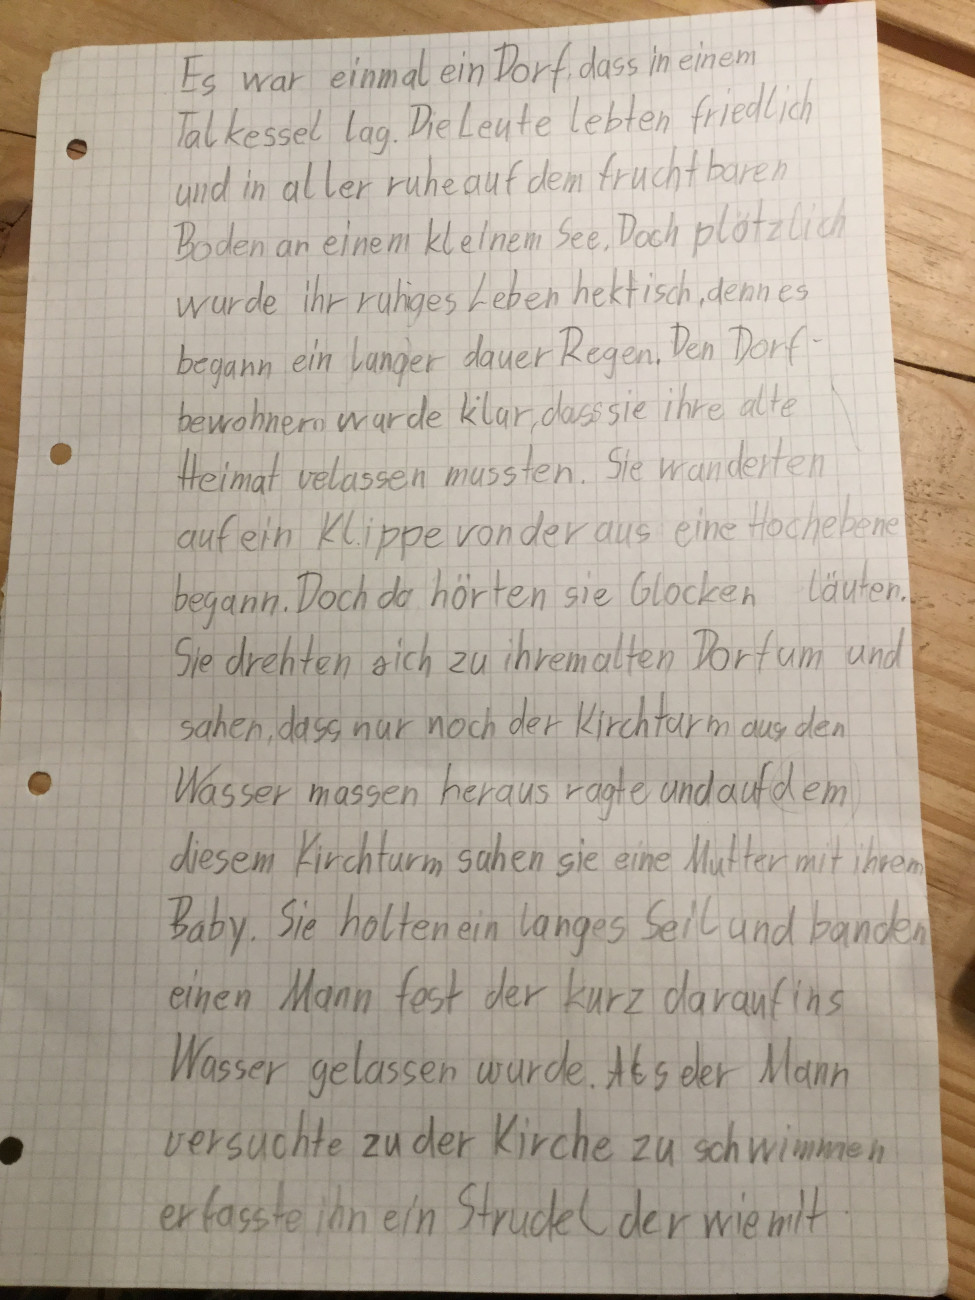 Es war einmal ein Dorf, dass in einem
Talkessel lag. Die Leute lebten friedlich
und in aller ruhe auf dem fruchtbaren
Boden an einem kleinem See. Doch plötzlich
wurde ihr ruhiges Leben hektisch, denn es
begann ein langer dauer Regen. Den Dorf-
bewohnern wurde klar, dass sie ihre alte
Heimat velassen mussten. Sie wanderten
auf ein Klippe von der aus eine Hochebene
begann. Doch da hörten sie Glocken läuten.
Sie drehten sich zu ihrem alten Dorf um und
sahen, dass nur noch der Kirchturm aus den
Wasser massen heraus ragte und auf dem
diesem Kirchturm sahen sie eine Mutter mit ihrem
Baby. Sie holten ein langes Seil und banden
einen Mann fest der kurz darauf ins
Wasser gelassen wurde. Als der Mann
versuchte zu der Kirche zu schwimmen
erfasste ihn ein Strudel der wie mit